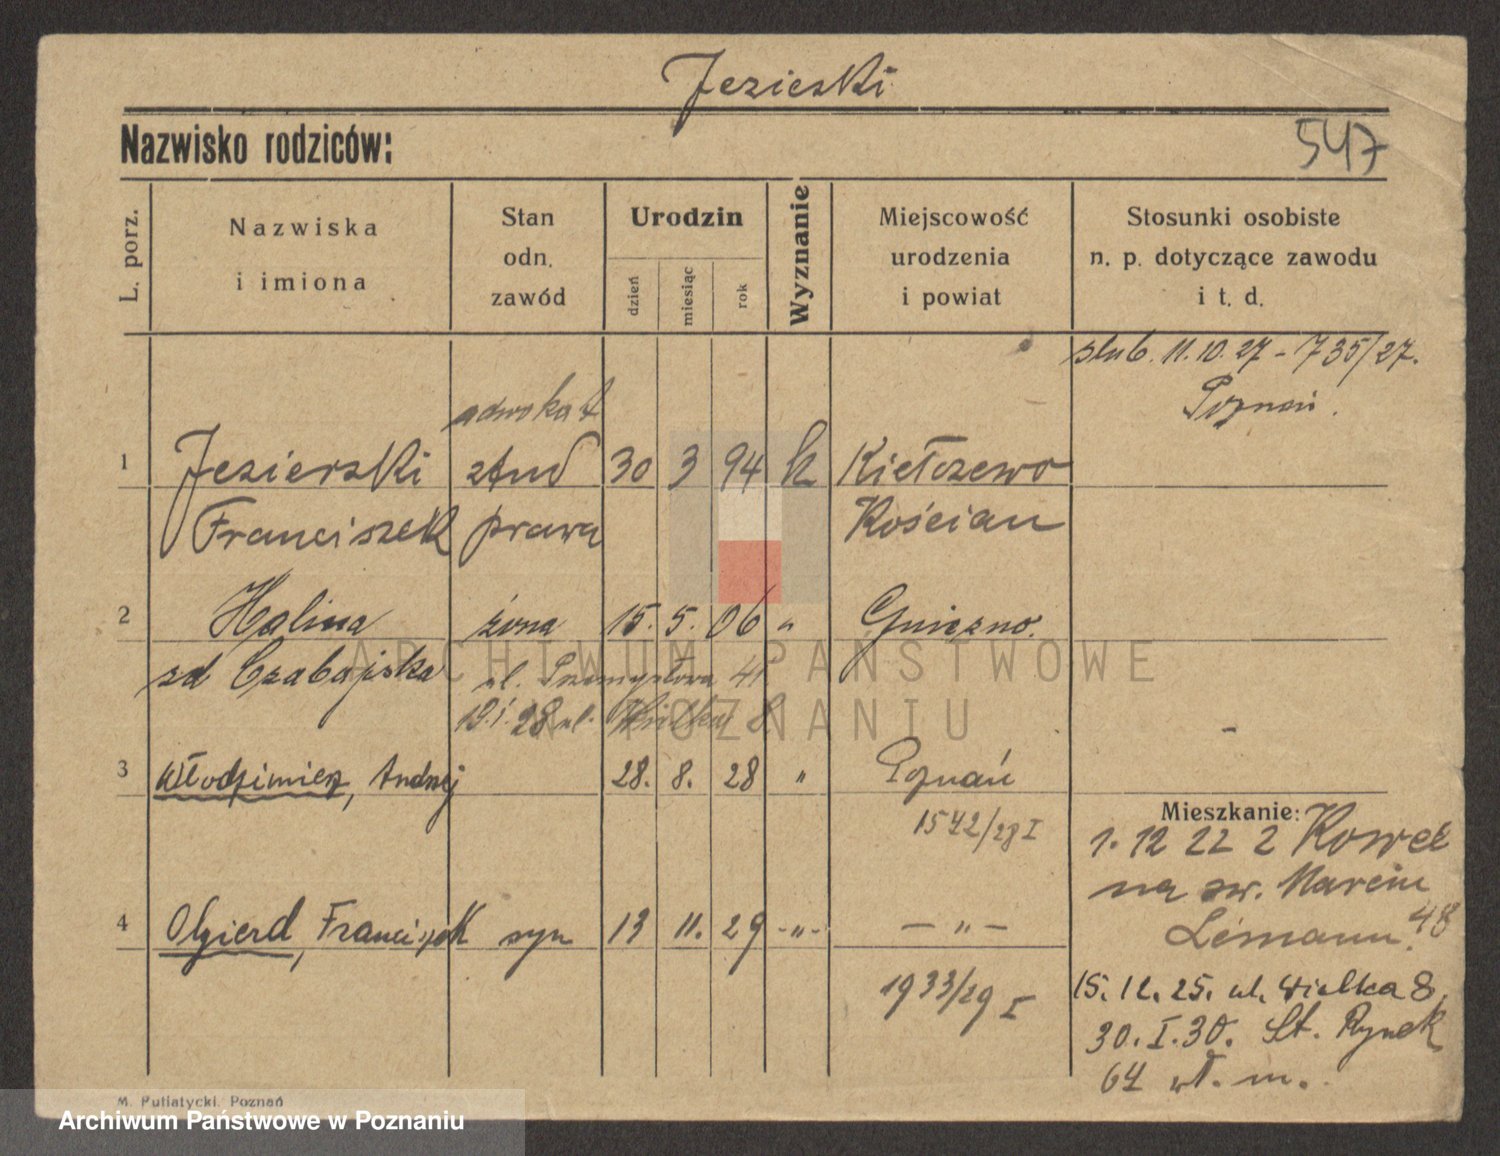 Jezierski
Nazwisko rodziców:
547
L. porz.
Nazwiska
i imiona
Stan
odn.
zawód
Urodzin
dzień
miesiąc
rok
Wyznanie
Miejscowość
urodzenia
i powiat
Stosunki osobiste
n. p. dotyczące zawodu
i t. d.
slub. 11.10.27 - 735/27.
Poznań.
adwokat
1 Jezierski stud 30 3 94 k Kiełczewo
Franciszek prawa Kościan
2 Halina żona 15. 5. 06 " Gniezno.
zd Czabajska ul. Przemysłowa 41
19.I.28 ul. Wielka 8
3 Włodzimierz, Andrzej 28. 8. 28 " Poznań
1542/28 I
Mieszkanie:
1. 12 22 z Kowel
na św. Marcin 48
4 Olgierd, Franciszek syn 13 11. 29 -"- - " -
Lemann.
1933/29 I
15. 12. 25. ul. Wielka 8.
30. I. 30. St. Rynek
64 wł. m.
M. Putiatycki, Poznań
ARCHIWUM PAŃSTWOWE
W POZNANIU
Archiwum Państwowe w Poznaniu